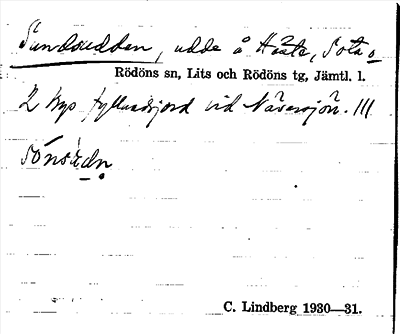 Sundsudden, udde å Håste, Sota o
Rödöns sn, Lits och Rödöns tg, Jämtl. l.
2 kvs fyllnadsjord vid Näversjön. III
C. Lindberg 1930—31.